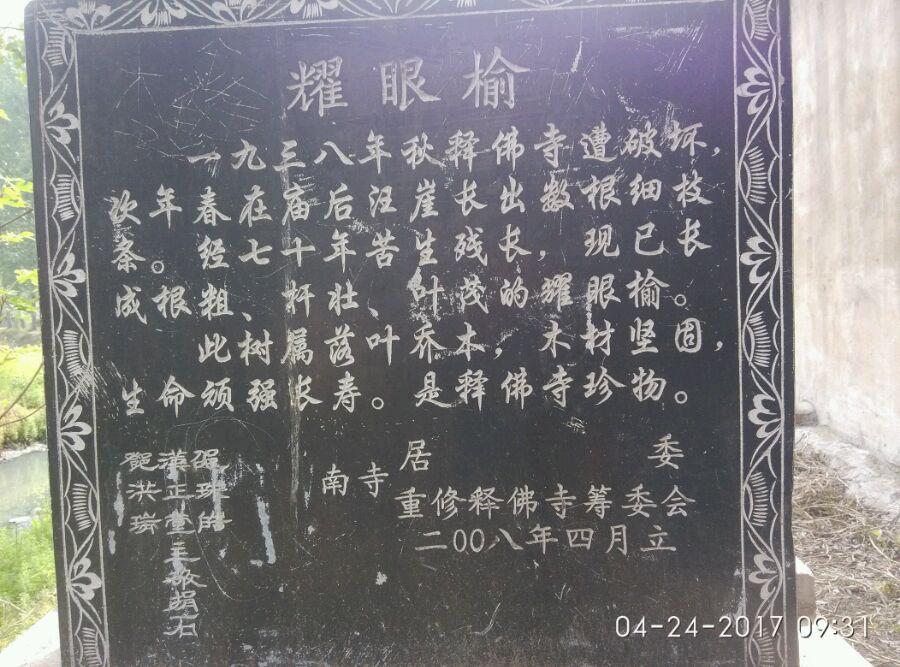 耀眼榆
一九三八年秋释佛寺遭破坏，
次年春在庙后汪崖长出数根细枝
条。经七十年苦生残长，现已长
成根粗、杆壮、叶茂的耀眼榆。
此树属落叶乔木，木材坚固，
生命顽强长寿。是释佛寺珍物。
南寺居委
重修释佛寺筹委会
二00八年四月立
邵
汉正堂主敬捐石
贺洪
04-24-2017 09:31